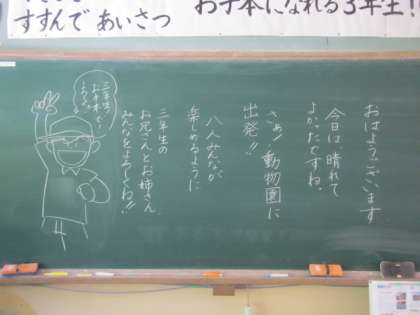 すすんで あいさつ
お手本になれる3年生!!
おはようございます
今日は、晴れて
よかったですね。
さぁ!動物園に
出発!!
八人みんなが
楽しめるように
三年生の
お兄さんとお姉さん、
みんなをよろしくね!!
三年生、